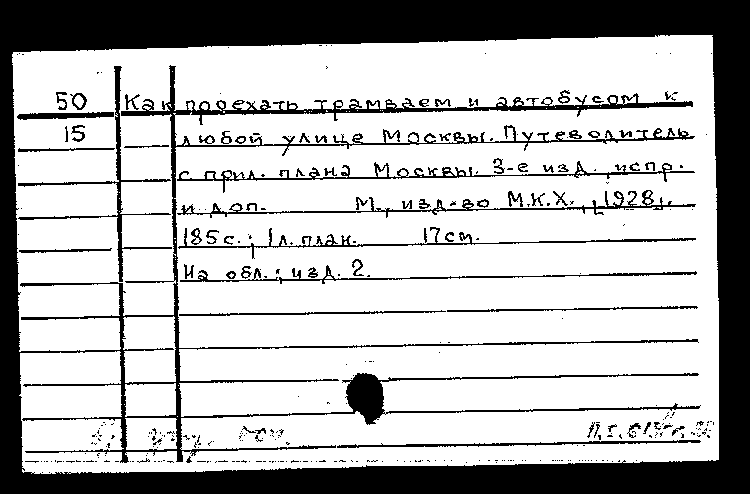 50 Как проехать трамваем и автобусом к
15 любой улице Москвы. Путеводитель
с прил. плана Москвы. 3-е изд., испр.
и доп. М., изд-во М.К.Х., [1928].
185с.; 1л. план. 17см.
На обл.: изд. 2.